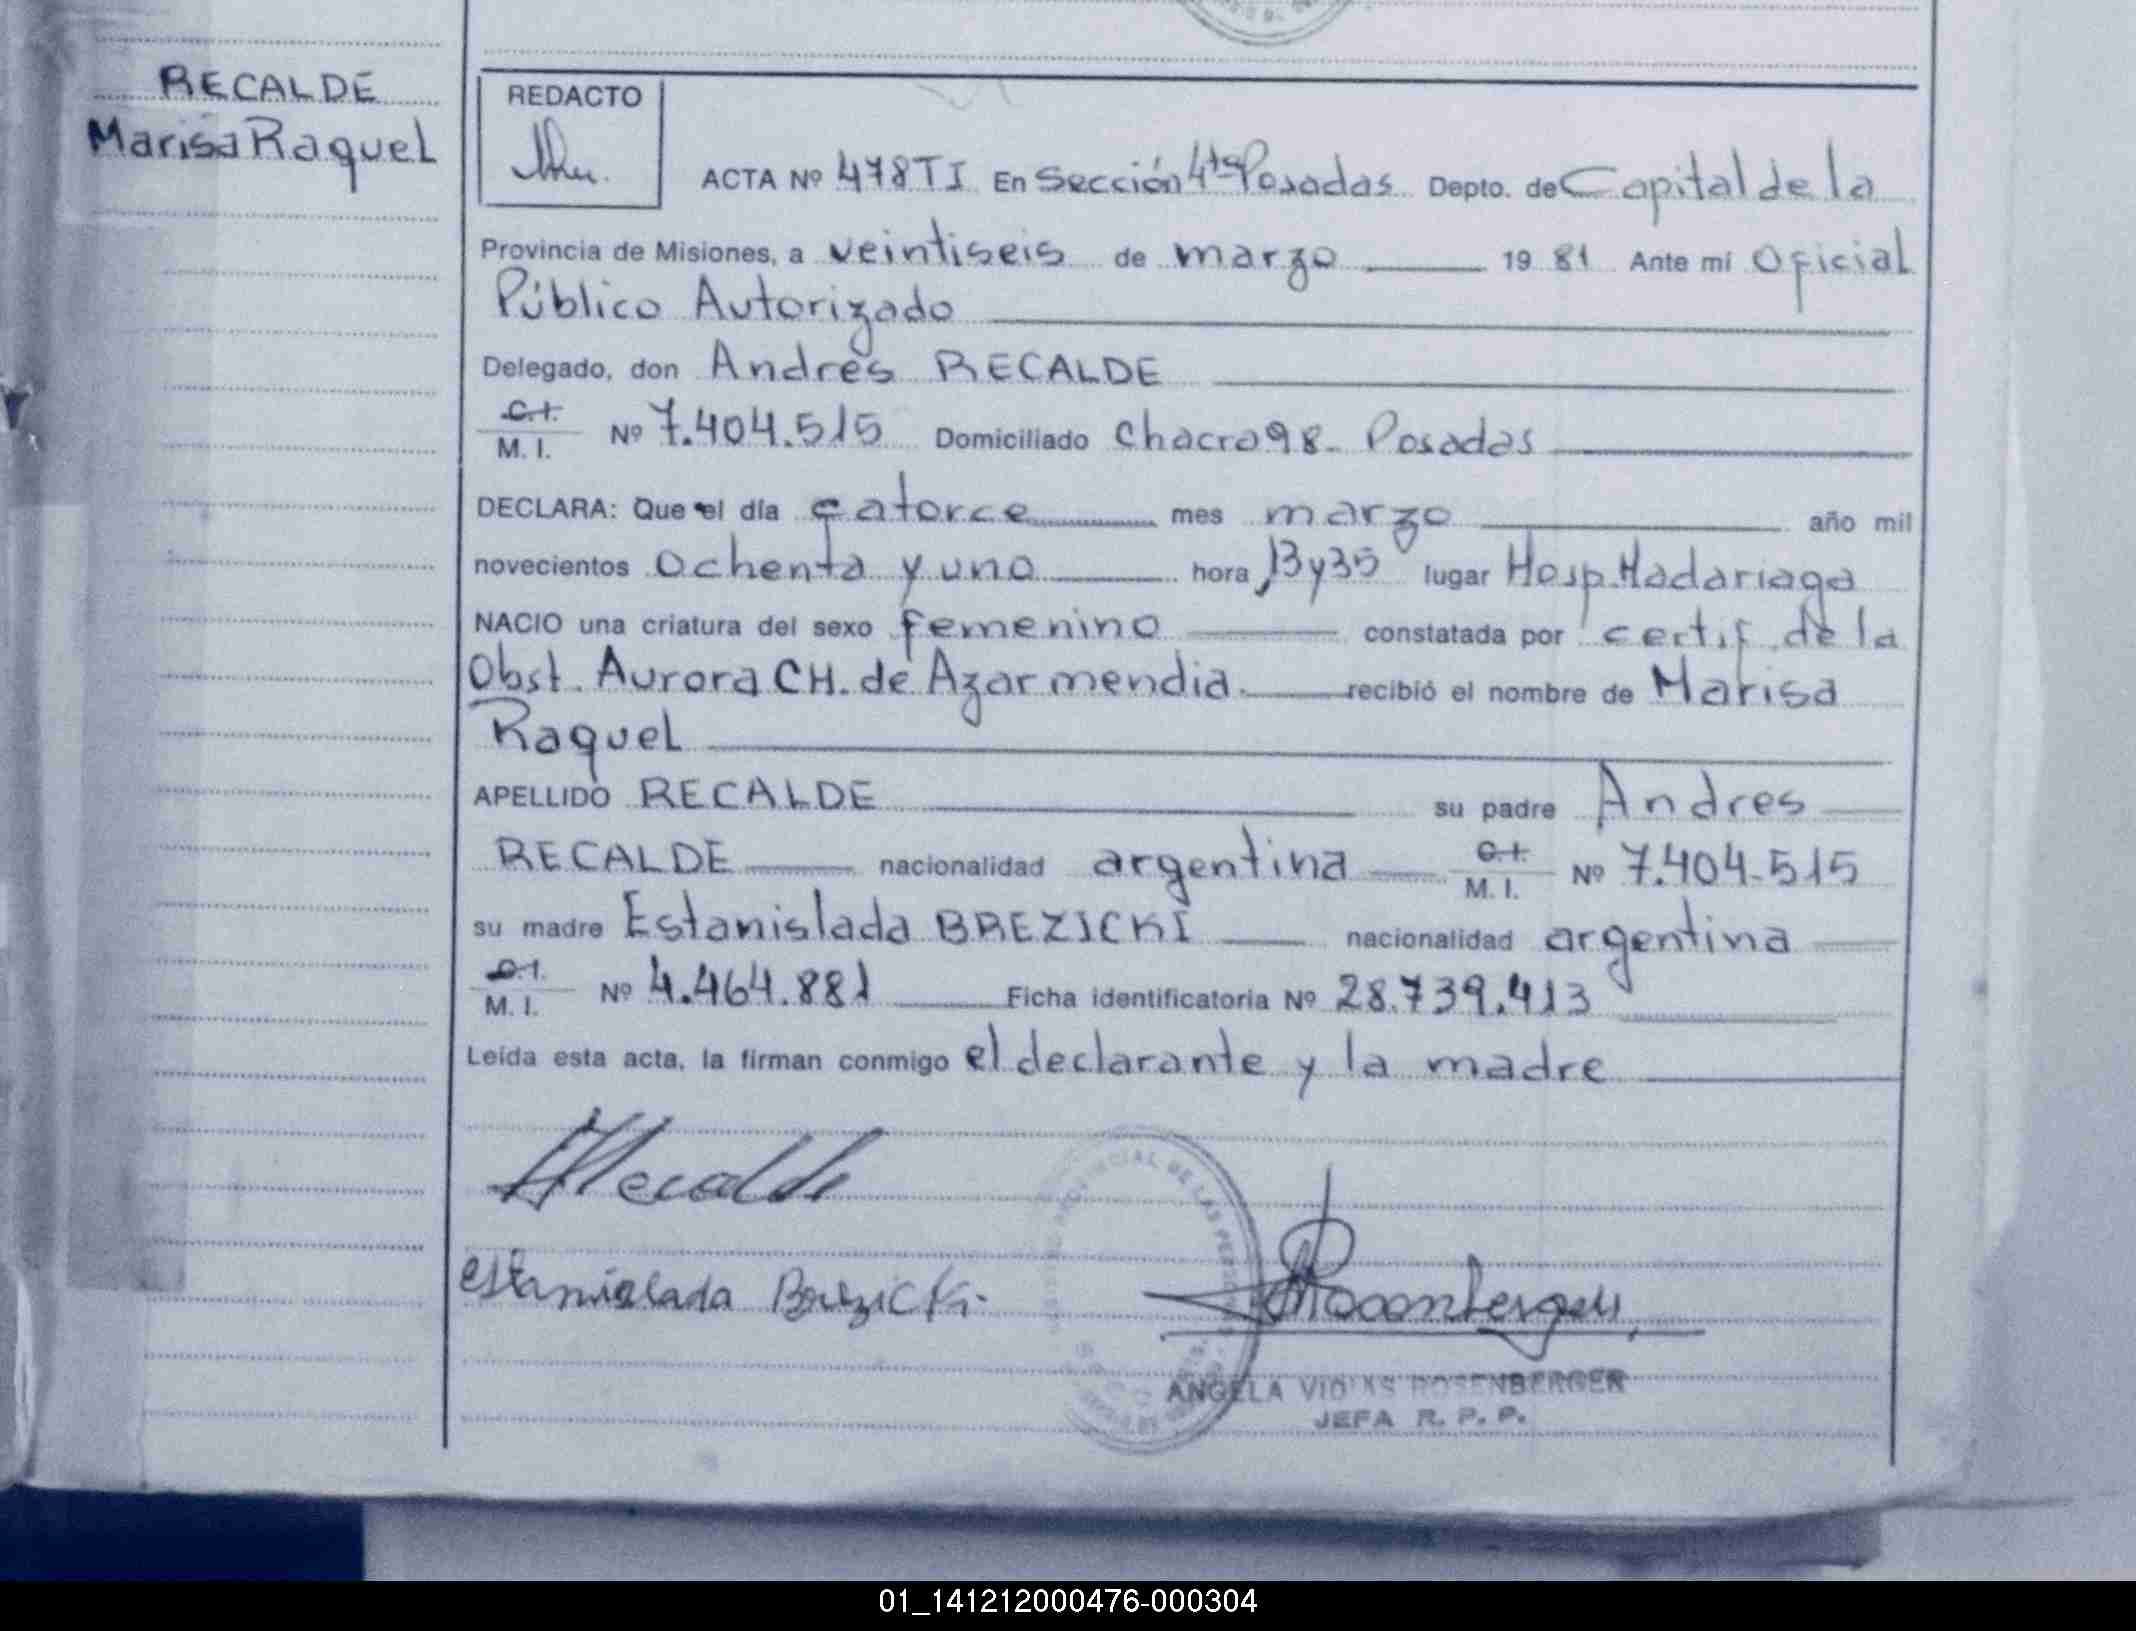 RECALDE
Marisa Raquel
REDACTO
ACTA Nº 478 TI En Sección 4ta Posadas Depto. de Capital de la
Provincia de Misiones, a veintiseis de marzo 19 81 Ante mi Oficial
Público Autorizado
Delegado, don Andrés RECALDE
C.I.
M. I. Nº 7.404.515 Domiciliado Chacra 98 - Posadas
DECLARA: Que el día catorce mes marzo año mil
novecientos ochenta y uno hora 13 y 35 lugar Hosp. Madariaga
NACIO una criatura del sexo femenino constatada por certif. de la
Obst. Aurora CH. de Azarmendia. recibió el nombre de Marisa
Raquel
APELLIDO RECALDE su padre Andres
RECALDE nacionalidad argentina C.I. M. I. Nº 7.404.515
su madre Estanislada BREZICKI nacionalidad argentina
C.I.
M. I. Nº 4.464.881 Ficha identificatoria Nº 28.739.413
Leída esta acta, la firman conmigo el declarante y la madre
ARecalde
estanislada Brezicki.
PROVINCIAL DE LAS PER
ANGELA ROSENBERGER
JEFA R. P. P.
01_141212000476-000304